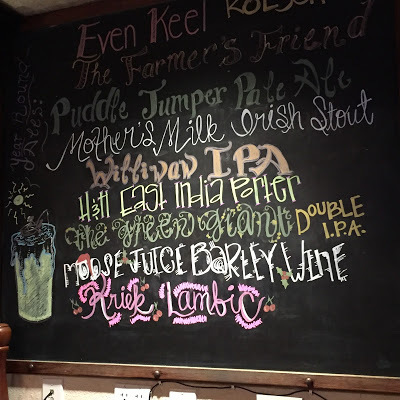 Year Round Ales:
Even Keel KOLSCH
The Farmer's Friend
Puddle Jumper Pale Ale
Mother's Milk Irish Stout
Williwaw IPA
H&H East India Porter
the green giant DOUBLE I.P.A.
MOOSE JUICE BARLEY WINE
Kriek Lambic